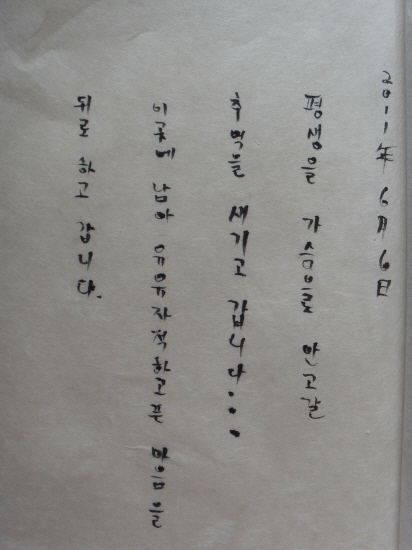 2011年 6月 6日
평생을 가슴으로 안고갈
추억들 새기고 갑니다...
이곳에 남아 유유자적하고픈 마음을
뒤로 하고 갑니다.